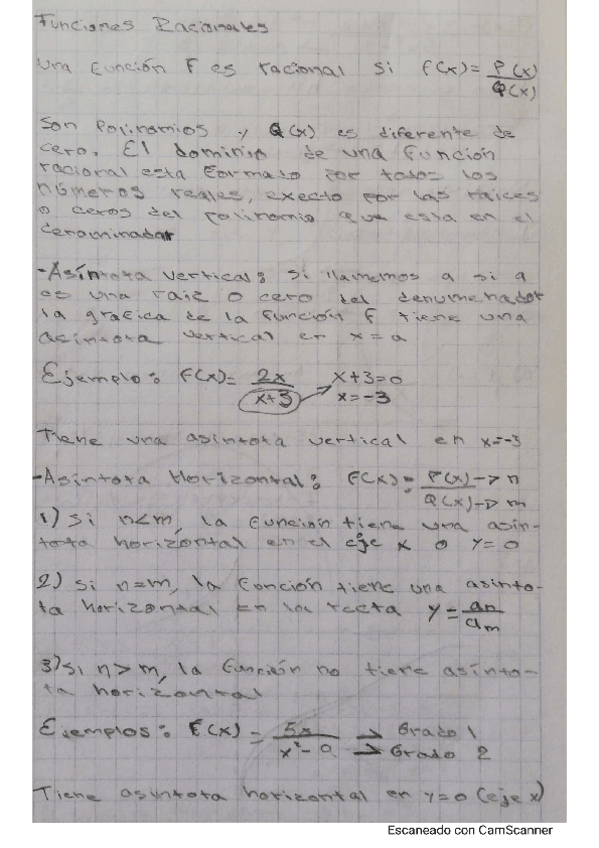 Funciones Racionales
Una Función F es racional si f(x)= P(x)
Q(x)
Son Polinomios y Q(x) es diferente de
cero. El dominio de una Función
racional esta Formado por todos los
números reales, execto por las raices
o ceros del polinomio que esta en el
denominador
-Asíntota vertical: si llamemos a si a
es una raiz o cero del denumenador
la grafica de la función F tiene una
asintota vertical en x=a
Ejemplo: F(x)= 2x x+3=0
x+3 x=-3
Tiene una asintota vertical en x=-3
-Asintota Horizontal: F(x)= P(x)-> n
Q(x)-> m
1) Si n<m, la Función tiene una asin-
tota horizontal en el eje x o y=0
2) si n=m, la Función tiene una asinto-
ta horizontal en la recta y= an
am
3) si n>m, la Función no tiene asinto-
ta horizontal
Ejemplos: F(x) = 5x -> Grado 1
x²-9 -> Grado 2
Tiene asintota horizontal en y=0 (eje x)
Escaneado con CamScanner